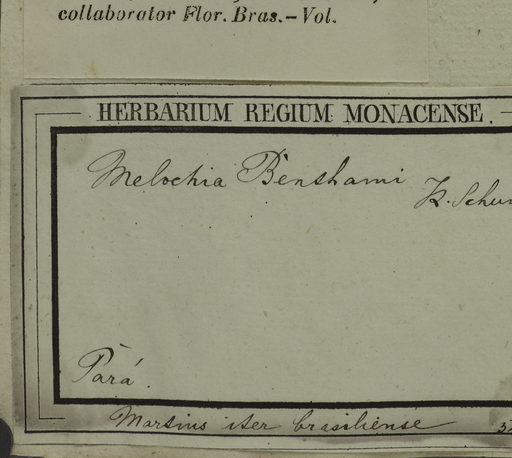 collaborator Flor. Bras.–Vol.
HERBARIUM REGIUM MONACENSE.
Melochia Benthami
K. Schum
Pará.
Martius iter brasiliense